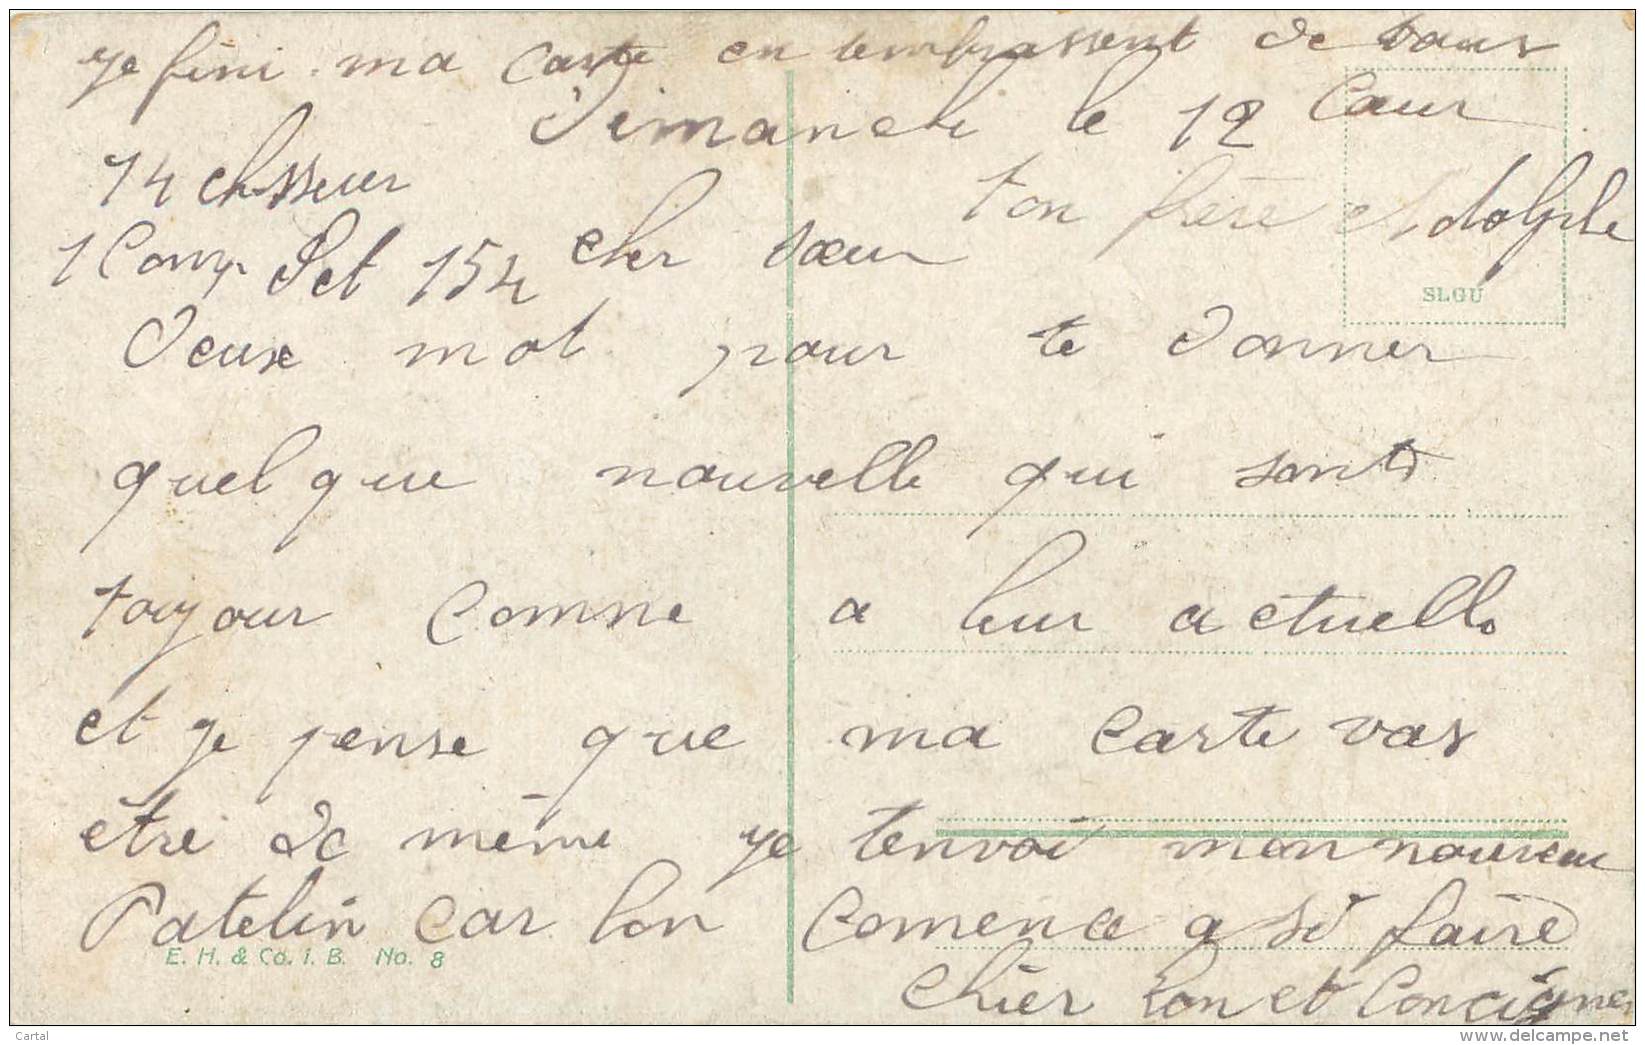 je fini ma carte en tembrassent de tous
Cœur
ton frère Adolphe
Dimanche le 12
14 chsseur
1 Comp Sct 154
cher sœur
SLGU
Deux mot pour te donner
quelque nouvelle qui sont
toujour comme a leur actuelle
et je pense que ma carte vas
être de même je tenvoi mon nouveau
Patelin car lon comence a si faire
chier lon et Concigner
E. H. & Co. i. B. No. 8
Cartal
delcampe.net